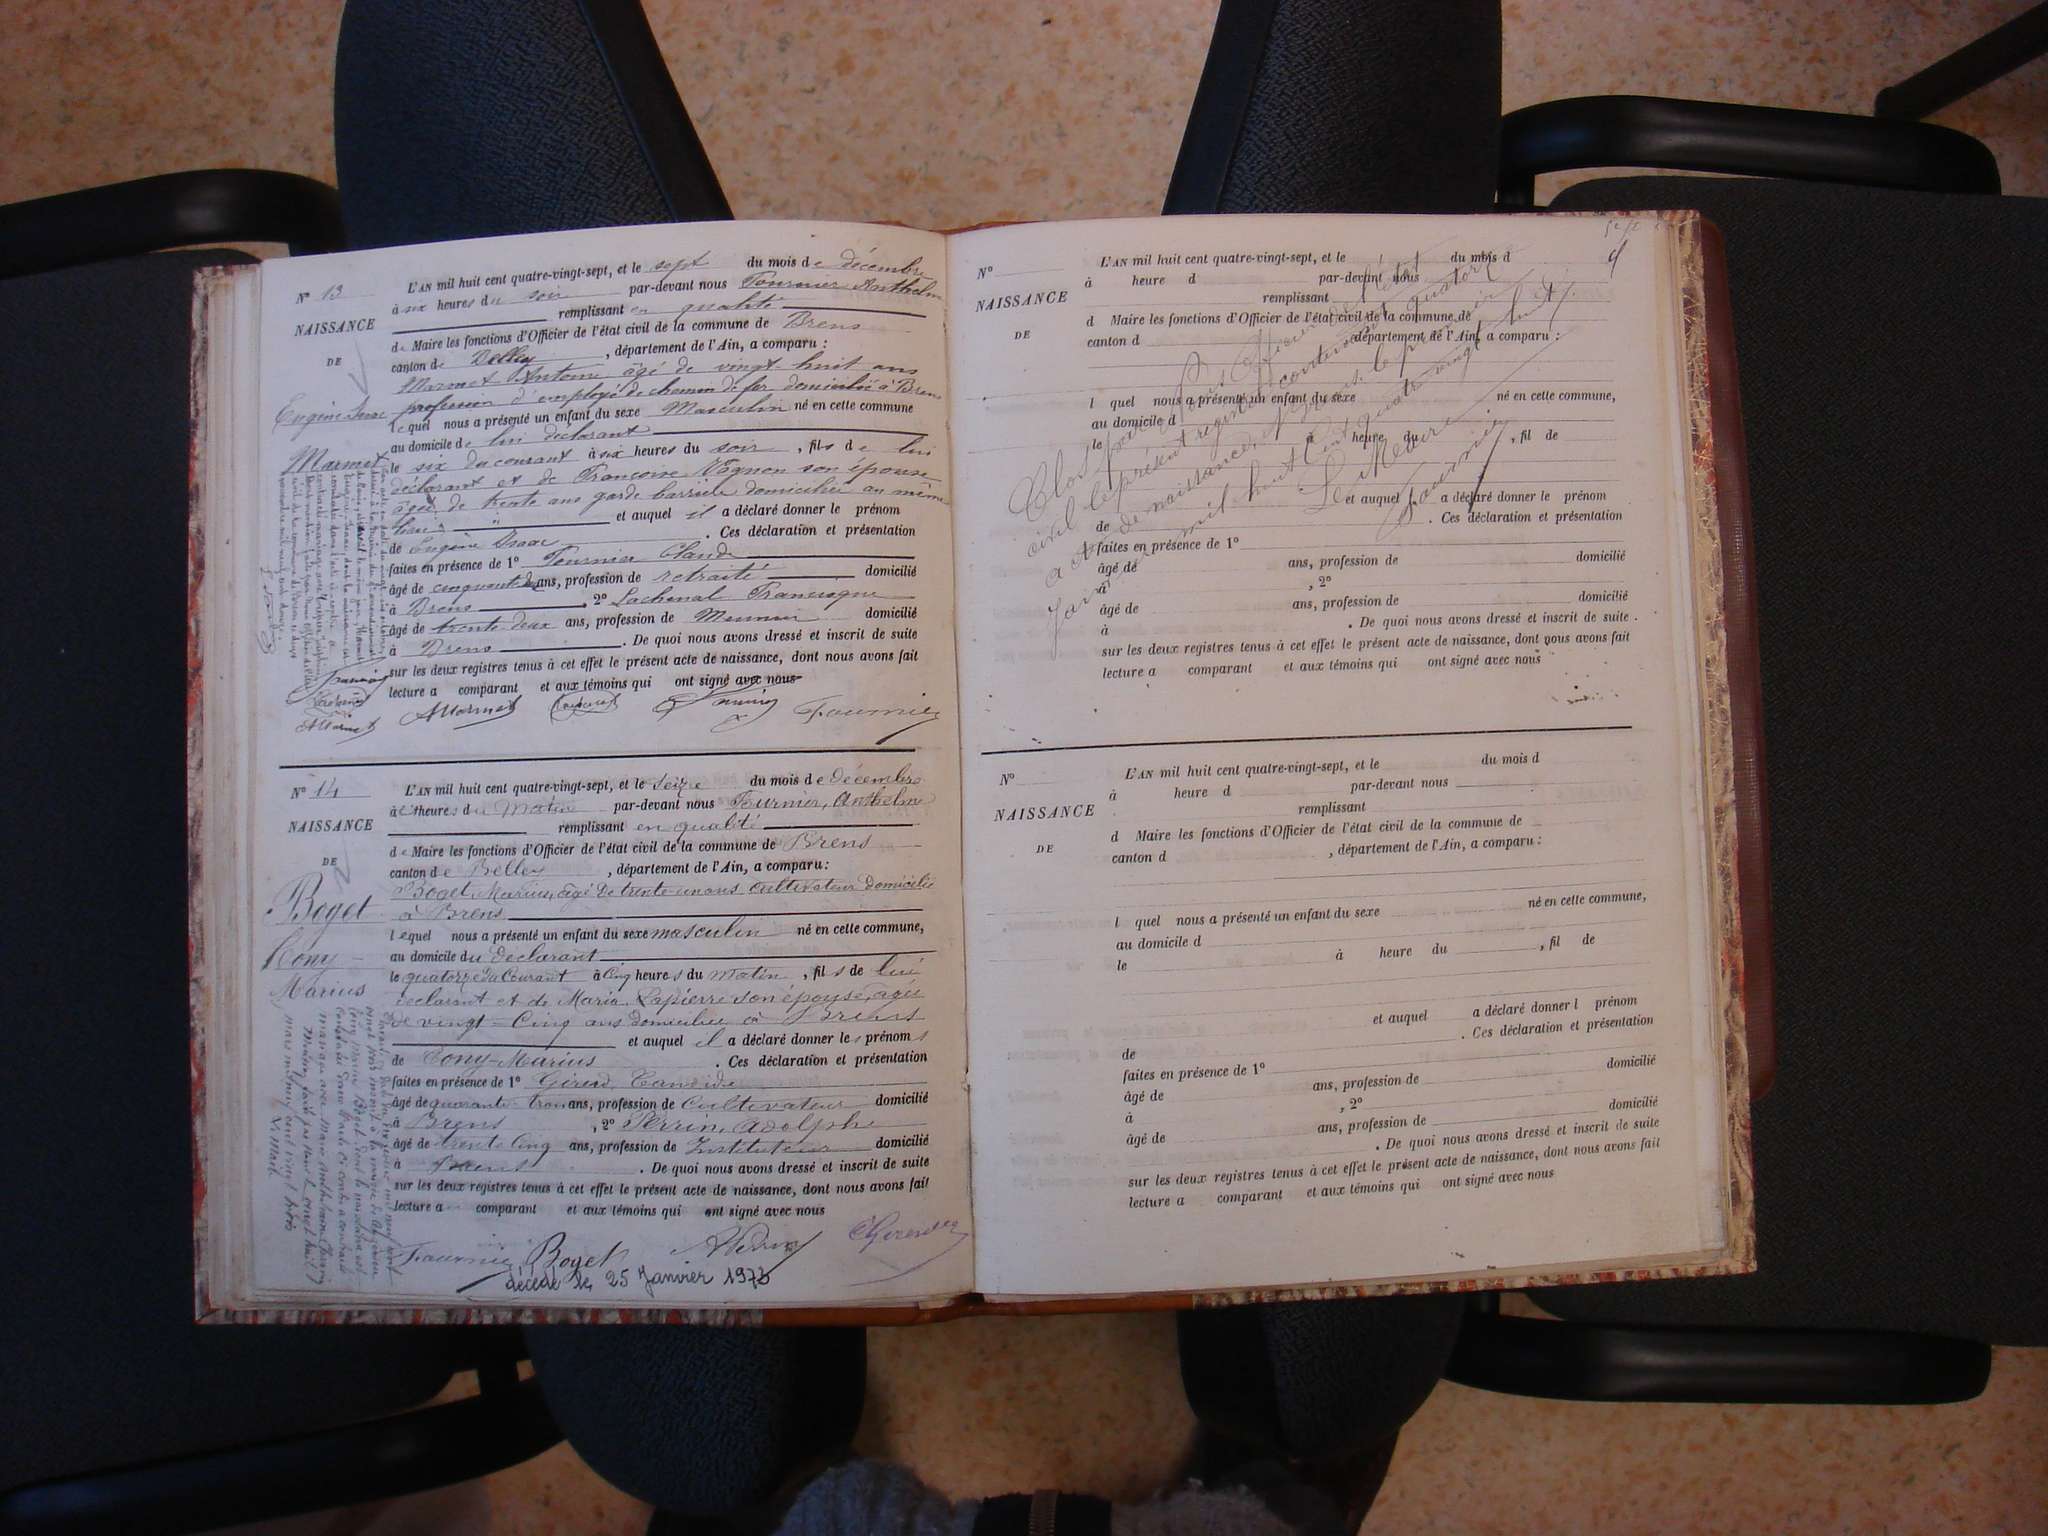 N° 13
NAISSANCE
DE
Eugène Isaac
Marmet
L'AN mil huit cent quatre-vingt-sept, et le sept du mois de décembre
à six heures du soir par-devant nous Fournier Anthelme
remplissant en qualité
de Maire les fonctions d'Officier de l'état civil de la commune de Brens
canton de Belley, département de l'Ain, a comparu :
Marmet Antoine âgé de vingt huit ans
profession d'employé de chemin de fer domicilié à Brens
lequel nous a présenté un enfant du sexe Masculin né en cette commune
au domicile de lui déclarant
le six du courant à six heures du soir, fils de lui
déclarant et de Françoise Vognon son épouse
âgée de trente ans garde barrière domiciliée au même
lieu " et auquel il a déclaré donner le prénom
de Eugène Isaac. Ces déclaration et présentation
faites en présence de 1° Fournier Claude
âgé de cinquante ans, profession de retraité domicilié
à Brens, 2° Lachenal Francisque
âgé de trente deux ans, profession de Meunier domicilié
à Brens. De quoi nous avons dressé et inscrit de suite
sur les deux registres tenus à cet effet le présent acte de naissance, dont nous avons fait
lecture a comparant et aux témoins qui ont signé avec nous
AMarmet Fournier
AMarmet
N° 14
NAISSANCE
DE
Boget
Tony
Marius
L'AN mil huit cent quatre-vingt-sept, et le seize du mois de décembre
à heures du Matin par-devant nous Fournier, Anthelme
remplissant en qualité
de Maire les fonctions d'Officier de l'état civil de la commune de Brens
canton de Belley, département de l'Ain, a comparu :
Boget, Marius, âgé de trente-un ans cultivateur domicilié
à Brens
lequel nous a présenté un enfant du sexe masculin né en cette commune,
au domicile du déclarant
le quatorze du Courant à Cinq heures du matin, fils de lui
déclarant et de Maria Lapierre son épouse, âgée
de vingt-Cinq ans domiciliée à Brens
et auquel il a déclaré donner les prénoms
de Tony-Marius. Ces déclaration et présentation
faites en présence de 1° Girerd, Candide
âgé de quarante-trois ans, profession de Cultivateur domicilié
à Brens, 2° Perrin, Adolphe
âgé de trente Cinq ans, profession de Instituteur domicilié
à Brens. De quoi nous avons dressé et inscrit de suite
sur les deux registres tenus à cet effet le présent acte de naissance, dont nous avons fait
lecture a comparant et aux témoins qui ont signé avec nous
Fournier Boget APerrin CGirerd
décédé le 25 Janvier 1973
N°
NAISSANCE
DE
L'AN mil huit cent quatre-vingt-sept, et le du mois d
à heure d par-devant nous
remplissant
d Maire les fonctions d'Officier de l'état civil de la commune de
canton d , département de l'Ain, a comparu :
l quel nous a présenté un enfant du sexe né en cette commune,
au domicile d
le à heure du , fil de
et auquel a déclaré donner l prénom
de . Ces déclaration et présentation
faites en présence de 1°
âgé de ans, profession de domicilié
à , 2°
âgé de ans, profession de domicilié
à . De quoi nous avons dressé et inscrit de suite
sur les deux registres tenus à cet effet le présent acte de naissance, dont nous avons fait
lecture a comparant et aux témoins qui ont signé avec nous
Clos par nous Officier de l'état
civil le présent registre contenant quatorze
actes de naissance, à Brens, le premier
Janvier mil huit Cent quatre vingt huit.
Le Maire
Fournier
N°
NAISSANCE
DE
L'AN mil huit cent quatre-vingt-sept, et le du mois d
à heure d par-devant nous
remplissant
d Maire les fonctions d'Officier de l'état civil de la commune de
canton d , département de l'Ain, a comparu :
l quel nous a présenté un enfant du sexe né en cette commune,
au domicile d
le à heure du , fil de
et auquel a déclaré donner l prénom
de . Ces déclaration et présentation
faites en présence de 1°
âgé de ans, profession de domicilié
à , 2°
âgé de ans, profession de domicilié
à . De quoi nous avons dressé et inscrit de suite
sur les deux registres tenus à cet effet le présent acte de naissance, dont nous avons fait
lecture a comparant et aux témoins qui ont signé avec nous